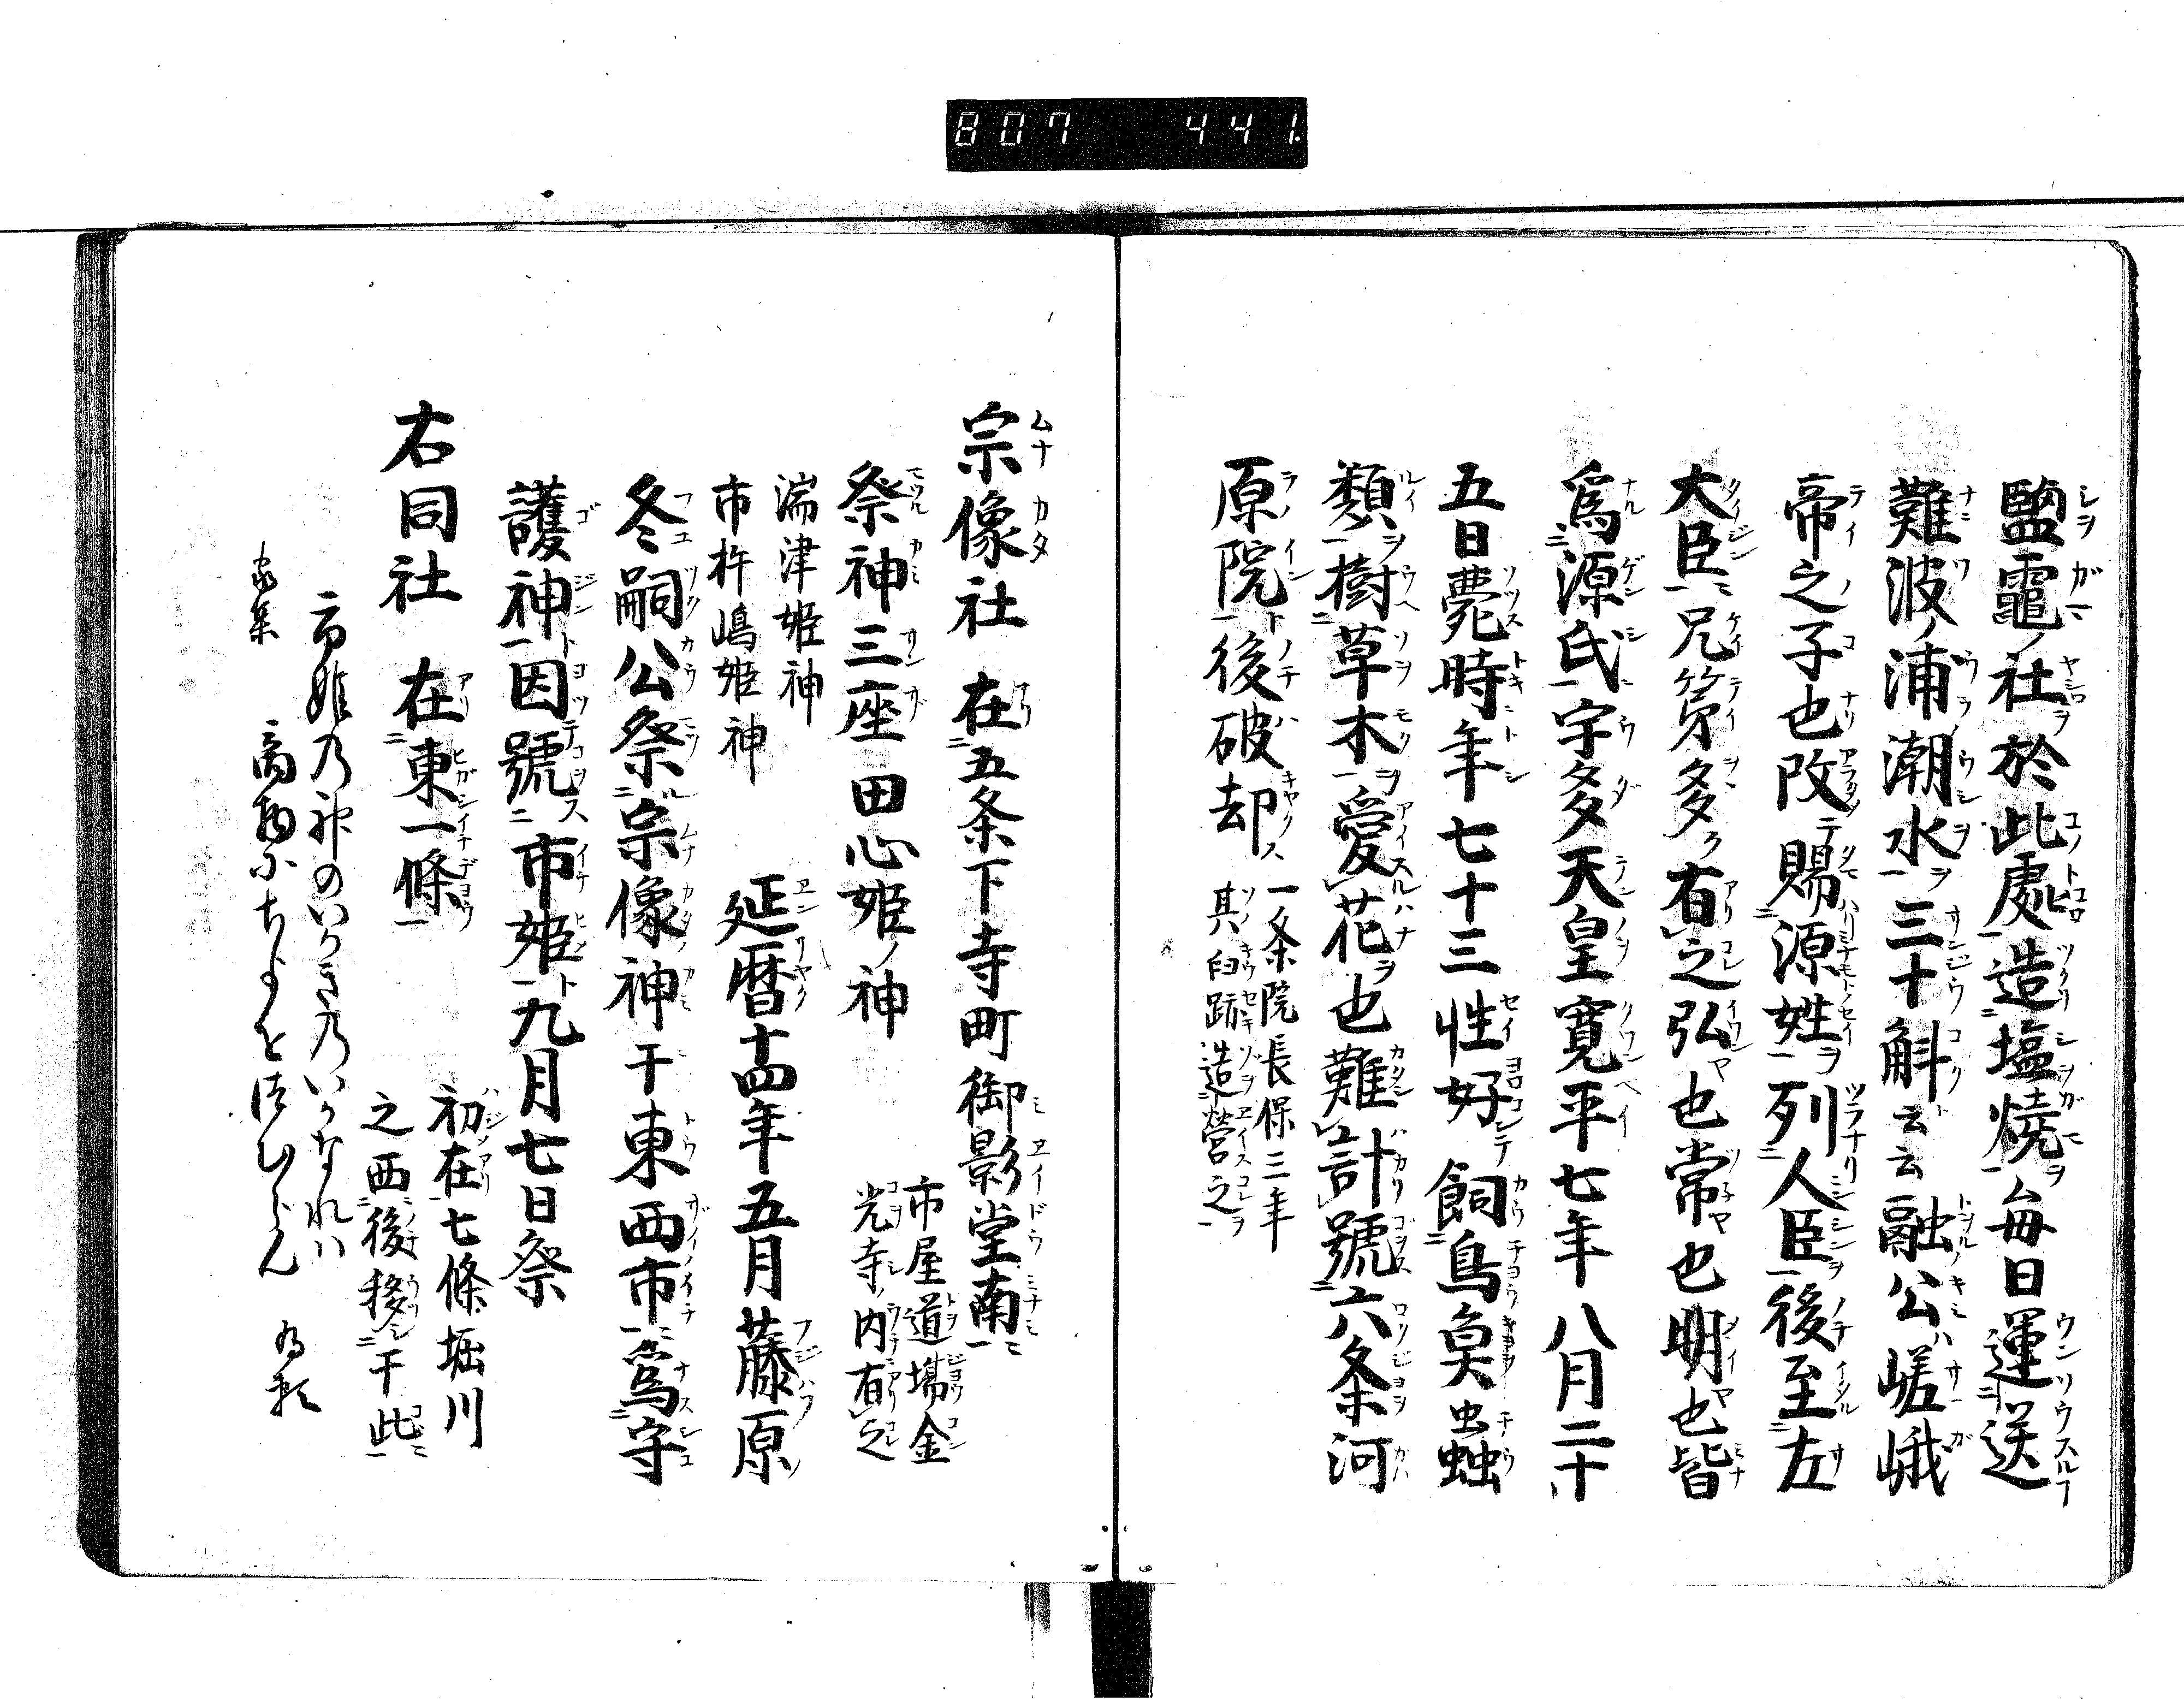 807 441.
鹽竈ノ社ヲ於此處造塩燒ヲ毎日運送
難波ノ浦潮水ヲ三十斛云云融公ハ嵯峨
帝之子也改テ賜源姓ヲ列人臣後至左
大臣ニ兄弟多ク有之弘也常也明也皆
爲源氏宇多天皇寛平七年八月二十
五日薨時年七十三性好テ飼鳥魚虫蛐
類ヲ樹草木ヲ愛花ヲ也難計號六条河
原院ト後破却ス
一条院長保三年
其臼跡造營之
宗像社在五条下寺町御影堂南ニ
祭神三座田心姫ノ神
市屋道場金
光寺ノ内有之
湍津姫神
市杵嶋姫神
延暦十四年五月藤原
冬嗣公祭宗像神于東西市爲守
護神因號市姫ト九月七日祭
右同社在東一條
初在七條堀川
之西後移于此
市姫乃神のいかき乃いかなれハ
家集
商物に千よを
為頼